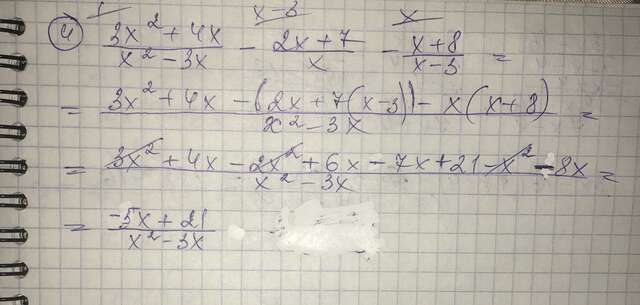 1 x-3 x
4) (3x² + 4x)/(x² - 3x) - (2x + 7)/x - (x + 8)/(x - 3) =
= (3x² + 4x - (2x + 7(x - 3)) - x(x + 8))/(x² - 3x) =
= (3x² + 4x - 2x² + 6x - 7x + 21 - x² - 8x)/(x² - 3x) =
= (-5x + 21)/(x² - 3x)